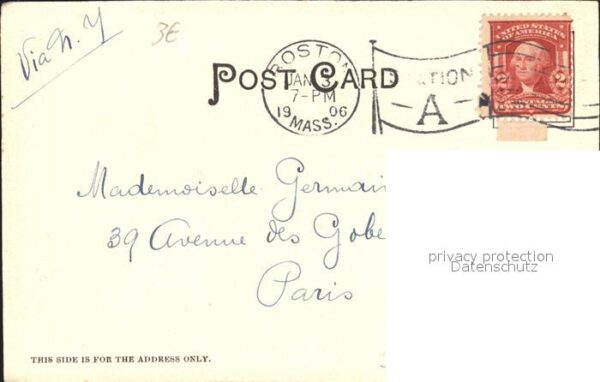 Via N. Y
3E
POST CARD
BOSTON
JAN 3
7-PM
1906
MASS.
STATION
A
UNITED STATES
OF AMERICA
2 2
POSTAGE
TWO CENTS
Mademoiselle Germain
39 Avenue des Gobe
Paris
privacy protection
Datenschutz
THIS SIDE IS FOR THE ADDRESS ONLY.